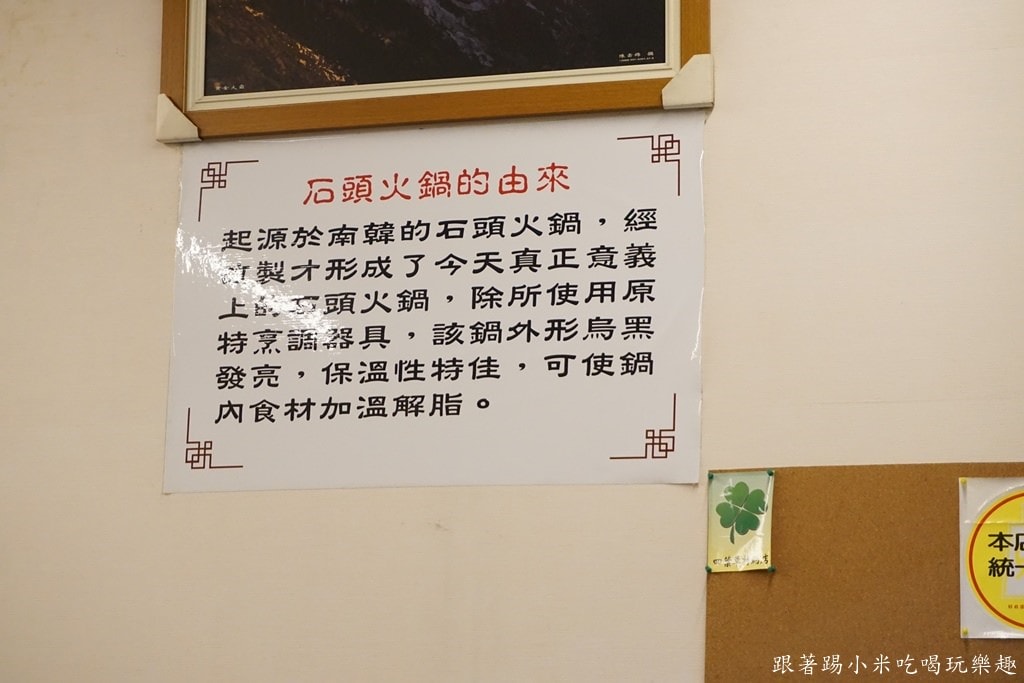 石頭火鍋的由來
起源於南韓的石頭火鍋，經
製才形成了今天真正意義
上的石頭火鍋，除所使用原
特烹調器具，該鍋外形烏黑
發亮，保溫性特佳，可使鍋
內食材加溫解脂。
本店
統一
跟著踢小米吃喝玩樂趣